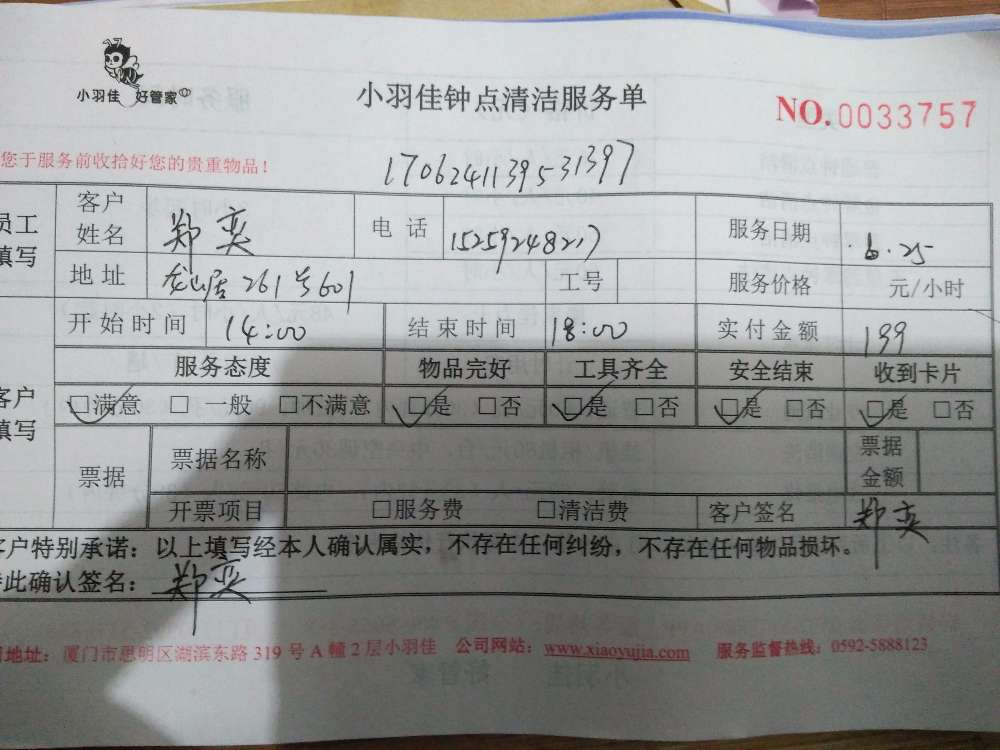 小羽佳 好管家
小羽佳钟点清洁服务单
NO.0033757
您于服务前收拾好您的贵重物品！
17062411139531397
员工填写
客户姓名 郑奕 电话 15259248217 服务日期 6.25
地址 龙山居261号601 工号 服务价格 元/小时
开始时间 14:00 结束时间 18:00 实付金额 199
客户填写
服务态度 物品完好 工具齐全 安全结束 收到卡片
□满意 □一般 □不满意 □是 □否 □是 □否 □是 □否 □是 □否
票据 票据名称 票据金额
开票项目 □服务费 □清洁费 客户签名 郑奕
客户特别承诺：以上填写经本人确认属实，不存在任何纠纷，不存在任何物品损坏。
此确认签名：郑奕
地址：厦门市思明区湖滨东路319号A幢2层小羽佳 公司网站：www.xiaoyujia.com 服务监督热线：0592-5888123